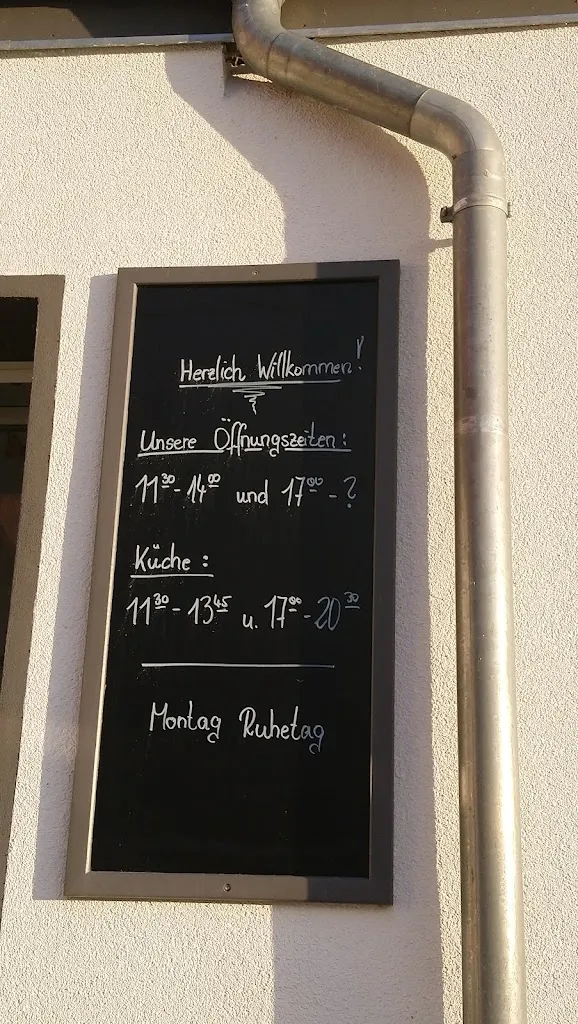 Herzlich Willkommen!
Unsere Öffnungszeiten:
11³⁰ - 14⁰⁰ und 17⁰⁰ - ?
Küche:
11³⁰ - 13⁴⁵ u. 17⁰⁰ - 20³⁰
Montag Ruhetag